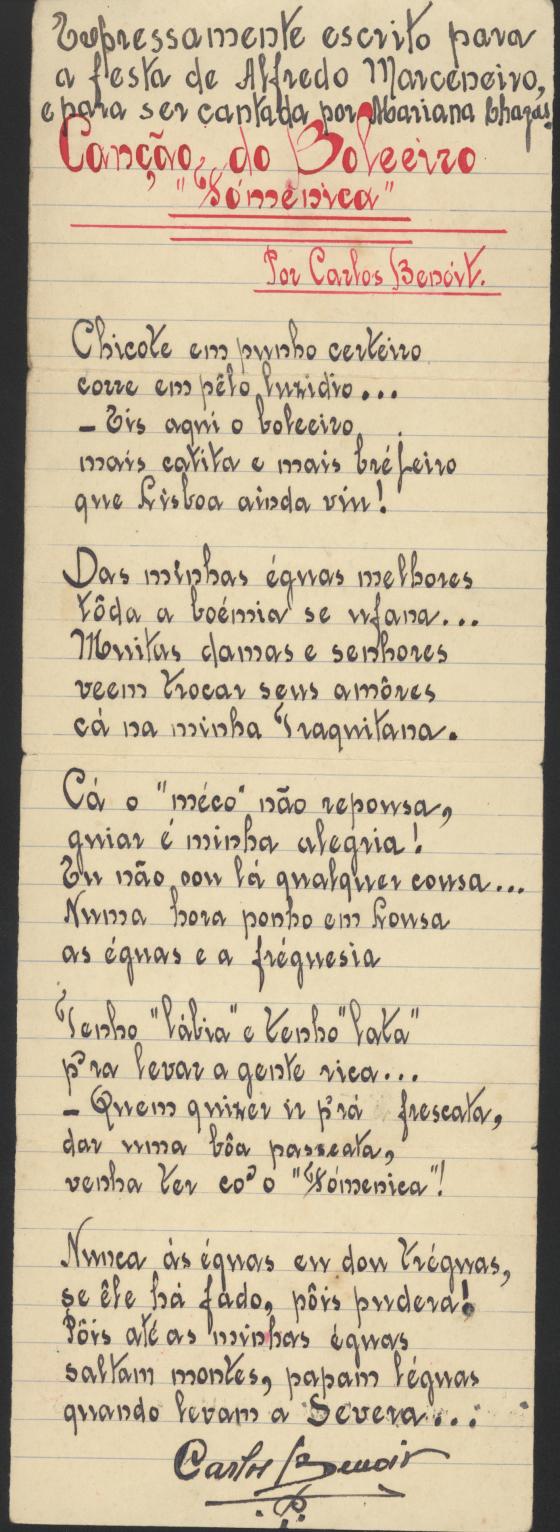 Expressamente escrito para
a festa de Alfredo Marceneiro,
e para ser cantada por Mariana Chagas
Canção, do Boleeiro
"Tómenica"
Por Carlos Benóit.
Chicote em punho certeiro
corre em pêlo luzidio...
- Eis aqui o boleeiro
mais catita e mais bréfeiro
que Lisboa ainda viu!
Das minhas éguas melhores
tôda a boémia se ufana...
Muitas damas e senhores
veem trocar seus amôres
cá na minha Traquitana.
Cá o "méco" não repousa,
guiar é minha alegria!
Eu não sou lá qualquer cousa...
Numa hora ponho em Lousa
as éguas e a fréguesia
Tenho "lábia" e tenho "lata"
p'ra levar a gente rica...
- Quem quizer ir p'rá frescata,
dar uma bôa passeata,
venha ter co'o "Tómenica"!
Nunca ás éguas eu dou tréguas,
se êle há fado, pôis pudera!
Pôis até as minhas éguas
saltam montes, papam léguas
quando levam a Severa...
Carlos Benoit